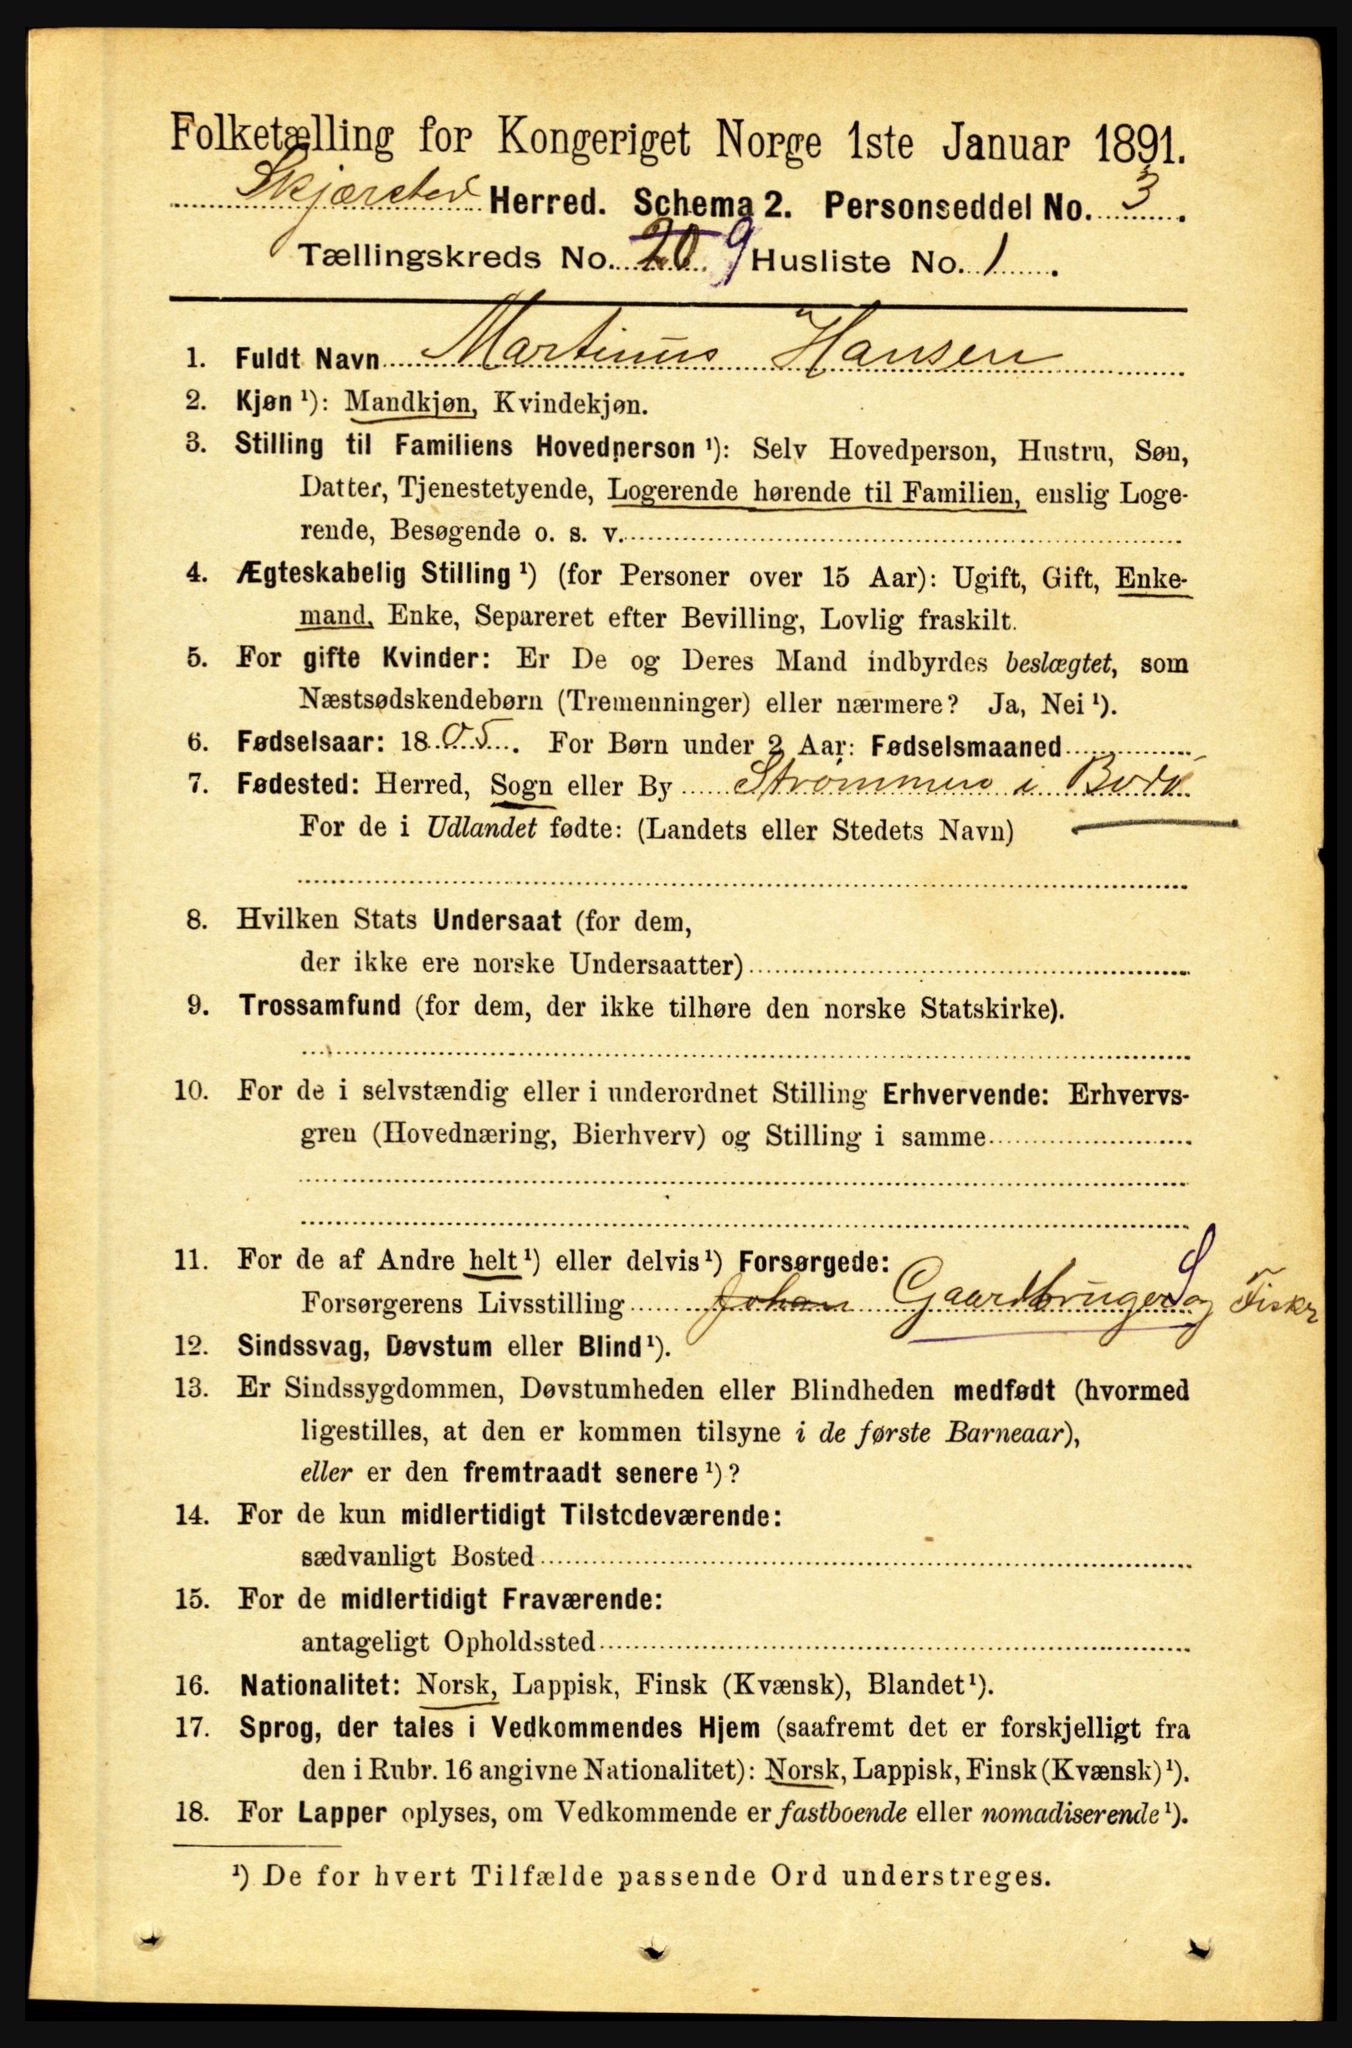 Folketælling for Kongeriget Norge 1ste Januar 1891.
Skjærsted Herred. Schema 2. Personseddel No. 3.
Tællingskreds No. 20 9 Husliste No. 1.
1. Fuldt Navn Martinus Hansen
2. Kjøn ¹): Mandkjøn, Kvindekjøn.
3. Stilling til Familiens Hovedperson ¹): Selv Hovedperson, Hustru, Søn,
Datter, Tjenestetyende, Logerende hørende til Familien, enslig Loge-
rende, Besøgende o. s. v.
4. Ægteskabelig Stilling ¹) (for Personer over 15 Aar): Ugift, Gift, Enke-
mand, Enke, Separeret efter Bevilling, Lovlig fraskilt.
5. For gifte Kvinder: Er De og Deres Mand indbyrdes beslægtet, som
Næstsødskendebørn (Tremenninger) eller nærmere? Ja, Nei ¹).
6. Fødselsaar: 1805. For Børn under 2 Aar: Fødselsmaaned
7. Fødested: Herred, Sogn eller By Strømmen i Bodø
For de i Udlandet fødte: (Landets eller Stedets Navn)
8. Hvilken Stats Undersaat (for dem,
der ikke ere norske Undersaatter)
9. Trossamfund (for dem, der ikke tilhøre den norske Statskirke).
10. For de i selvstændig eller i underordnet Stilling Erhvervende: Erhvervs-
gren (Hovednæring, Bierhverv) og Stilling i samme
11. For de af Andre helt ¹) eller delvis ¹) Forsørgede: S
Forsørgerens Livsstilling Johan Gaardbruger og Fiskr
12. Sindssvag, Døvstum eller Blind ¹).
13. Er Sindssygdommen, Døvstumheden eller Blindheden medfødt (hvormed
ligestilles, at den er kommen tilsyne i de første Barneaar),
eller er den fremtraadt senere ¹)?
14. For de kun midlertidigt Tilstedeværende:
sædvanligt Bosted
15. For de midlertidigt Fraværende:
antageligt Opholdssted
16. Nationalitet: Norsk, Lappisk, Finsk (Kvænsk), Blandet ¹).
17. Sprog, der tales i Vedkommendes Hjem (saafremt det er forskjelligt fra
den i Rubr. 16 angivne Nationalitet): Norsk, Lappisk, Finsk (Kvænsk) ¹).
18. For Lapper oplyses, om Vedkommende er fastboende eller nomadiserende ¹).
¹) De for hvert Tilfælde passende Ord understreges.